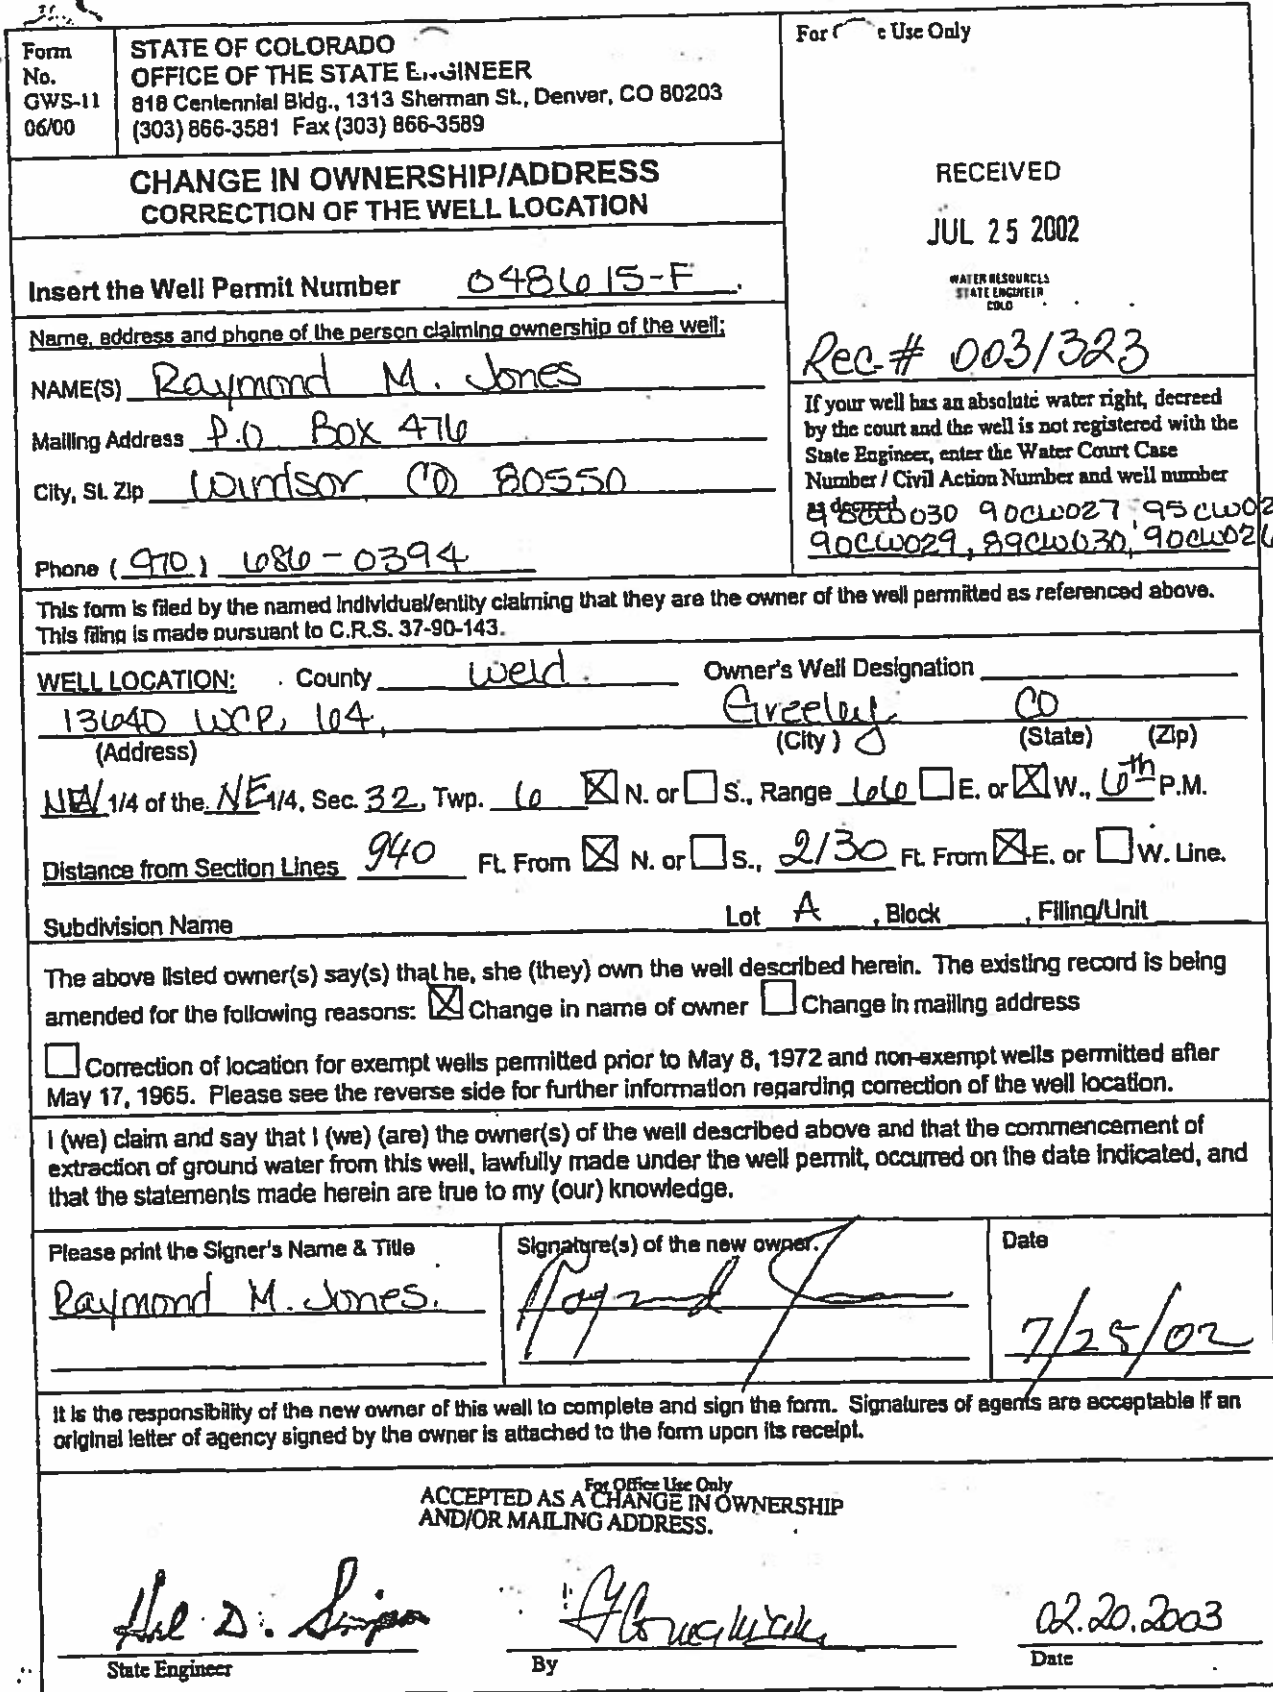 Form
No.
GWS-11
06/00
STATE OF COLORADO
OFFICE OF THE STATE ENGINEER
818 Centennial Bldg., 1313 Sherman St., Denver, CO 80203
(303) 866-3581 Fax (303) 866-3589
For Use Only
CHANGE IN OWNERSHIP/ADDRESS
CORRECTION OF THE WELL LOCATION
RECEIVED
JUL 25 2002
WATER RESOURCES
STATE ENGINEER
COLO
Insert the Well Permit Number 048615-F
Rec# 0031323
Name, address and phone of the person claiming ownership of the well:
NAME(S) Raymond M. Jones
Mailing Address P.O. Box 476
City, St. Zip Windsor CO 80550
Phone (970) 686-0394
If your well has an absolute water right, decreed
by the court and the well is not registered with the
State Engineer, enter the Water Court Case
Number / Civil Action Number and well number
as decreed 030 90CW027 95CW02
90CW029, 89CW030, 90CW026
This form is filed by the named individual/entity claiming that they are the owner of the well permitted as referenced above.
This filing is made pursuant to C.R.S. 37-90-143.
WELL LOCATION: County Weld Owner's Well Designation
13640 WCR 64, Greeley CO
(Address) (City) (State) (Zip)
1/4 of the NE 1/4, Sec. 32, Twp. 6 ☒ N. or ☐ S., Range 66 ☐ E. or ☒ W., 6th P.M.
Distance from Section Lines 940 Ft. From ☒ N. or ☐ S., 2130 Ft. From ☒ E. or ☐ W. Line.
Subdivision Name Lot A, Block , Filing/Unit
The above listed owner(s) say(s) that he, she (they) own the well described herein. The existing record is being
amended for the following reasons: ☒ Change in name of owner ☐ Change in mailing address
☐ Correction of location for exempt wells permitted prior to May 8, 1972 and non-exempt wells permitted after
May 17, 1965. Please see the reverse side for further information regarding correction of the well location.
I (we) claim and say that I (we) (are) the owner(s) of the well described above and that the commencement of
extraction of ground water from this well, lawfully made under the well permit, occurred on the date indicated, and
that the statements made herein are true to my (our) knowledge.
Please print the Signer's Name & Title
Raymond M. Jones.
Signature(s) of the new owner.
Raymond Jones
Date
7/25/02
It is the responsibility of the new owner of this well to complete and sign the form. Signatures of agents are acceptable if an
original letter of agency signed by the owner is attached to the form upon its receipt.
For Office Use Only
ACCEPTED AS A CHANGE IN OWNERSHIP
AND/OR MAILING ADDRESS.
Hal D. Simpson
02.20.2003
State Engineer
By
Date